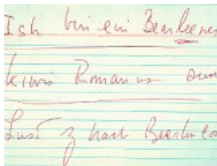 Ish bin ein Bearleener
kiwis Romanus sum
z nach Bearlin